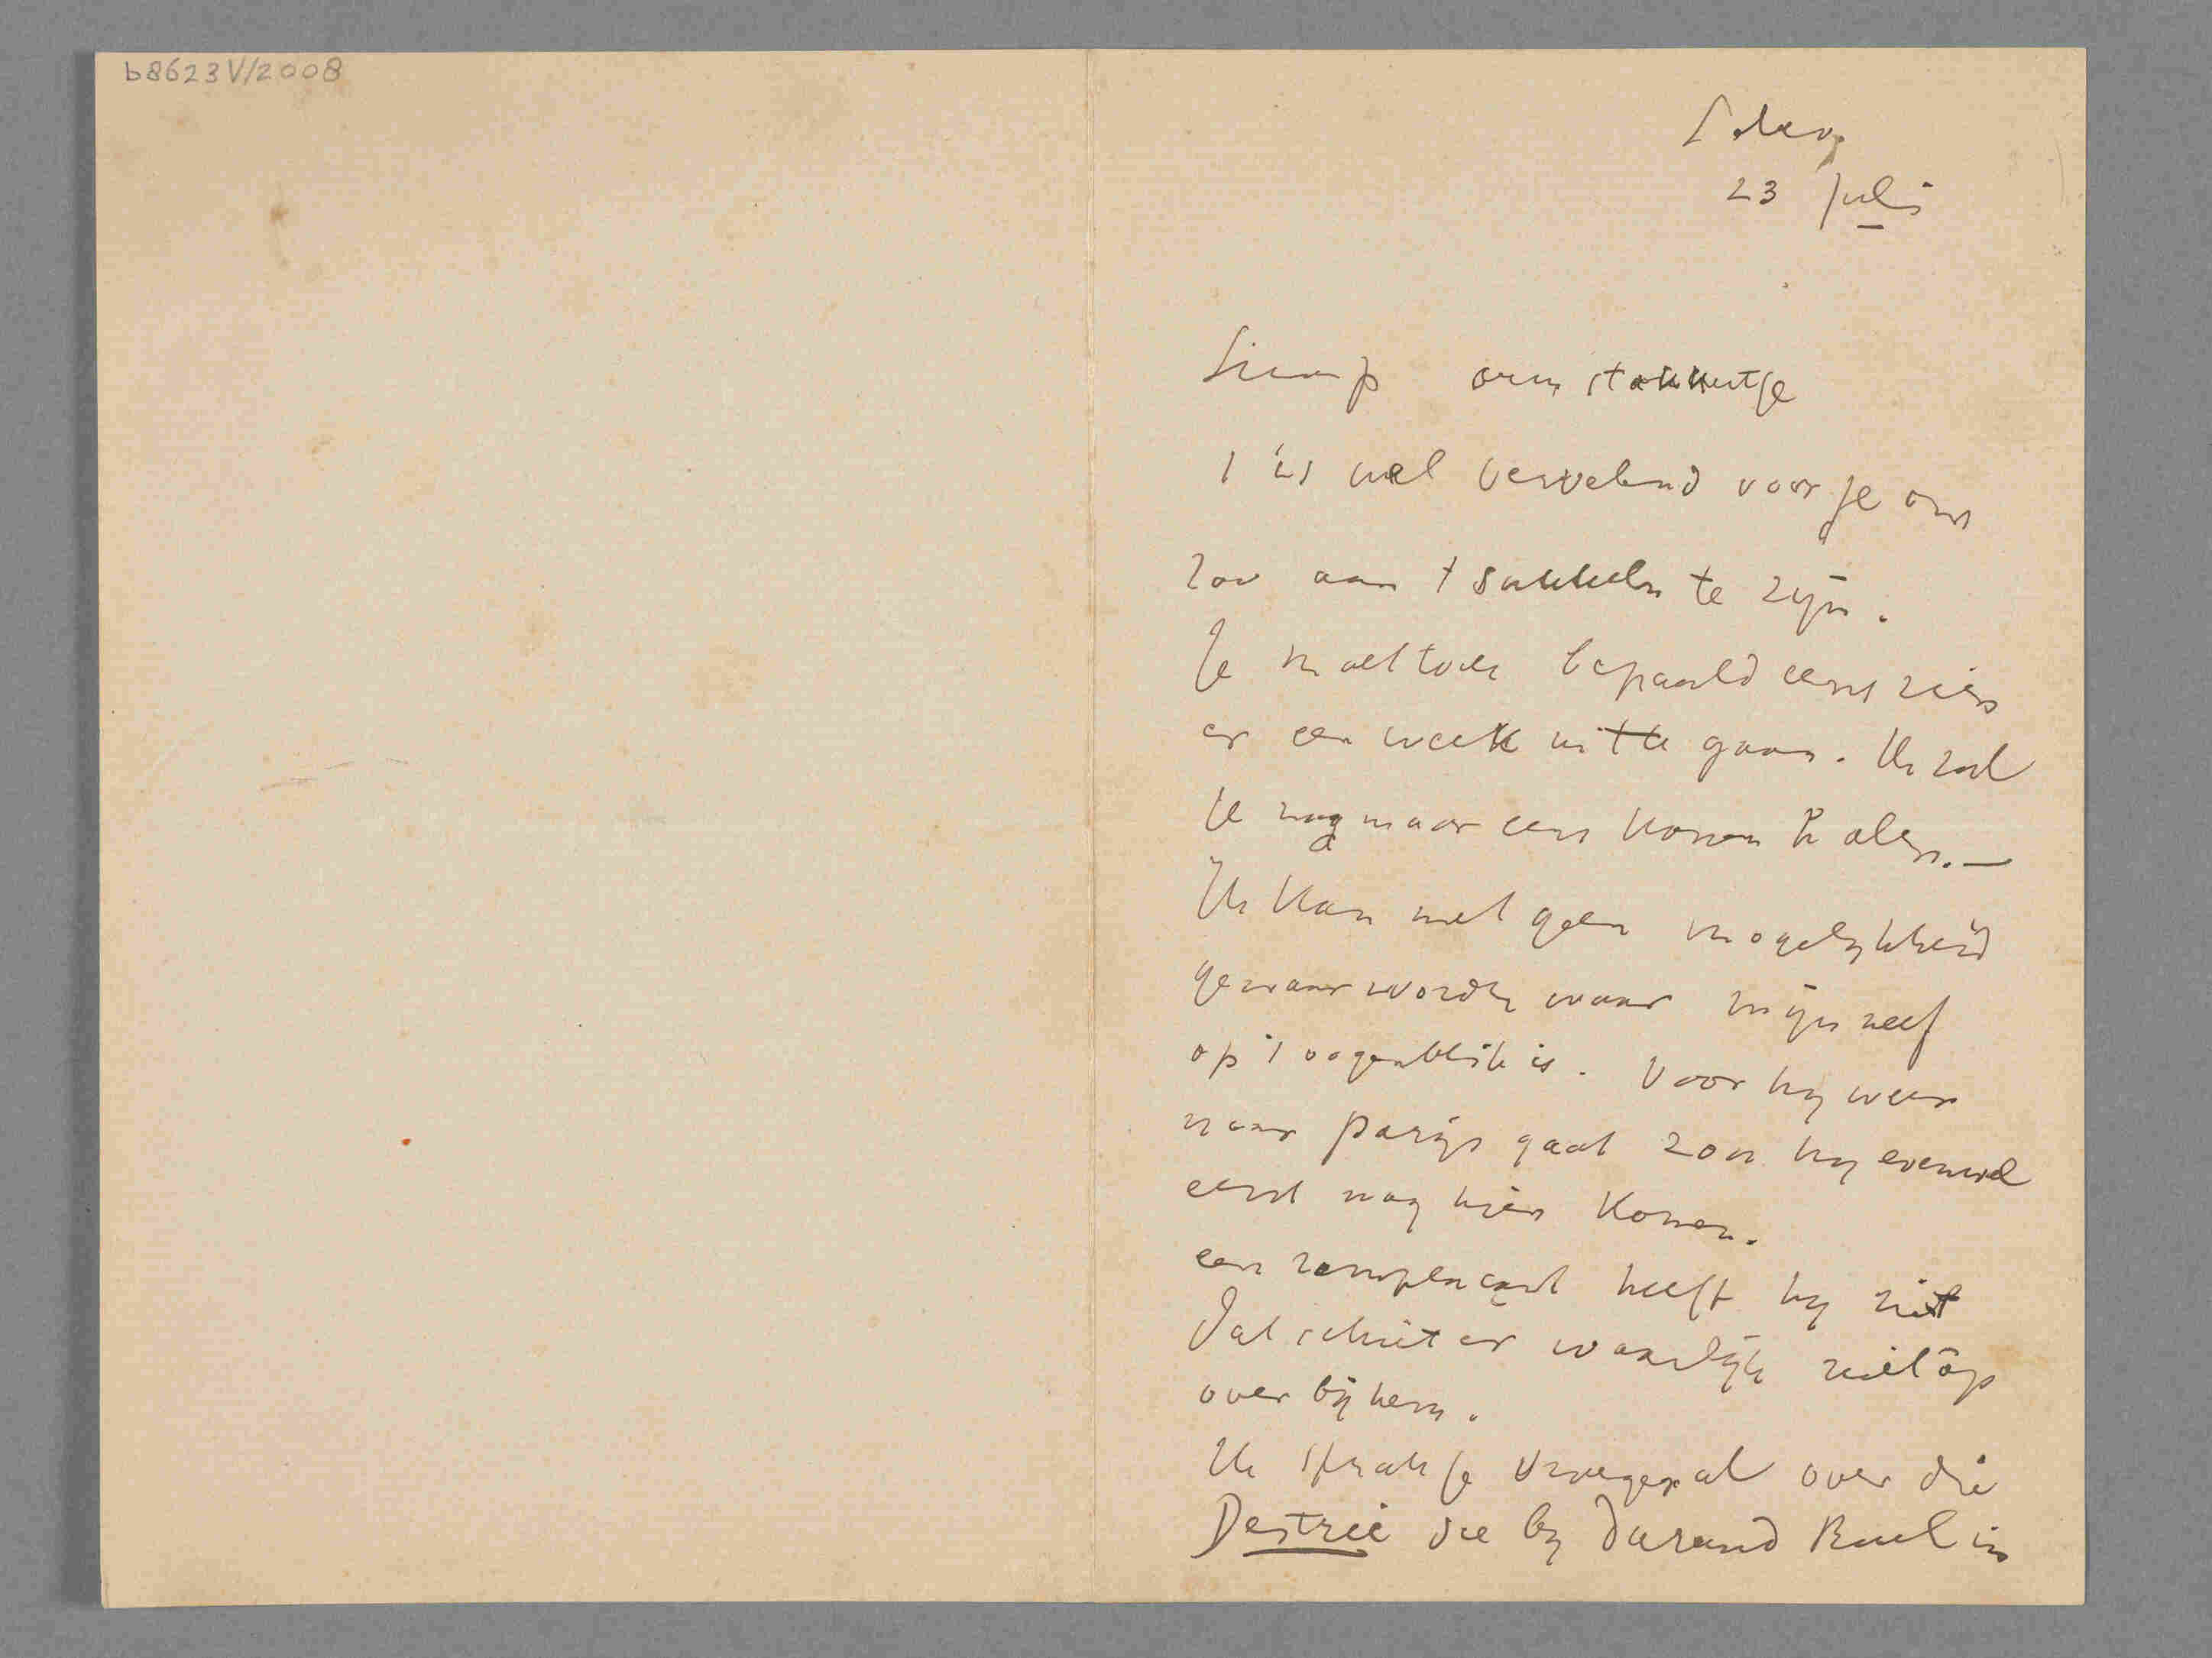 b8623 V/2008
Laren
23 Juli
arm stakkertje
't is wel vervelend voor je om
zoo aan t sukkelen te zijn.
Je moet toch bepaald eens zien
er een week uit te gaan. Ik zal
je nog maar eens komen halen. —
Ik kan met geen mogelykheid
gewaar worden waar mijn neef
op 't oogenblik is. Voor hy weer
naar Parijs gaat zou hy evenwel
eerst nog hier komen.
een remplaçant heeft hy niet
Dat schiet er waarlijk niet op
over bij hem.
Ik sprak je vroeger al over die
Destrée die by Durand Ruel is